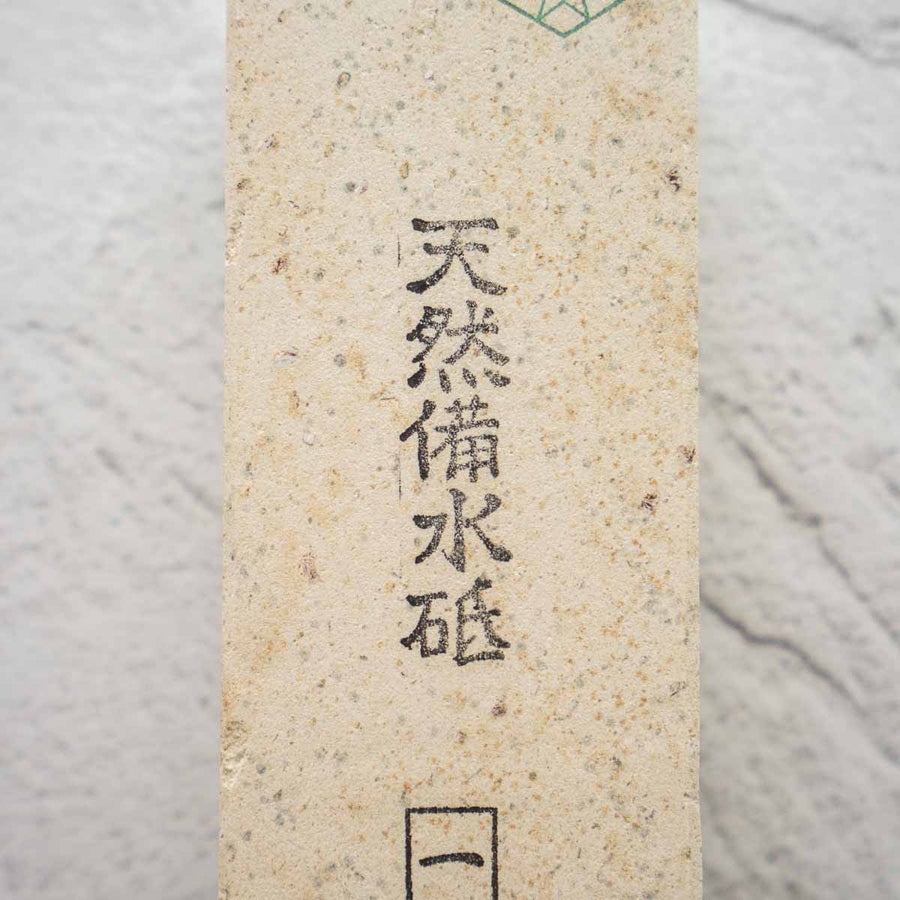 天然備水砥
一